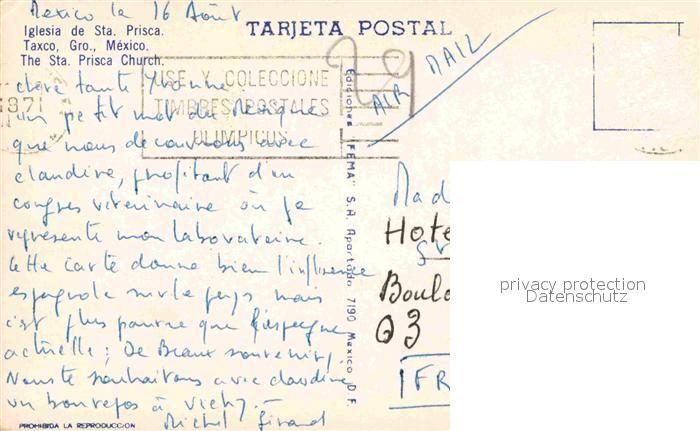 Mexico le 16 Août
Iglesia de Sta. Prisca.
Taxco, Gro., México.
The Sta. Prisca Church.
TARJETA POSTAL
29
AIR MAIL
1971
USE Y COLECCIONE
TIMBRES POSTALES
OLIMPICOS
chère tante Yvonne
un petit mot du Mexique
que nous découvrons avec
claudine, profitant d'un
congres vétérinaire où je
représente mon laboratoire.
Cette carte donne bien l'influence
espagnole sur le pays mais
c'est plus pauvre que l'espagne
actuelle; De Beaux souvenirs,
Nous te souhaitons avec claudine
un bon repos à Vichy.
Michel Giraud
PROHIBIDA LA REPRODUCCION
Ediciones "FEMA" S. A. Apartado 7190 Mexico D. F.
Mad
Hote
Boula
03
FR
privacy protection
Datenschutz